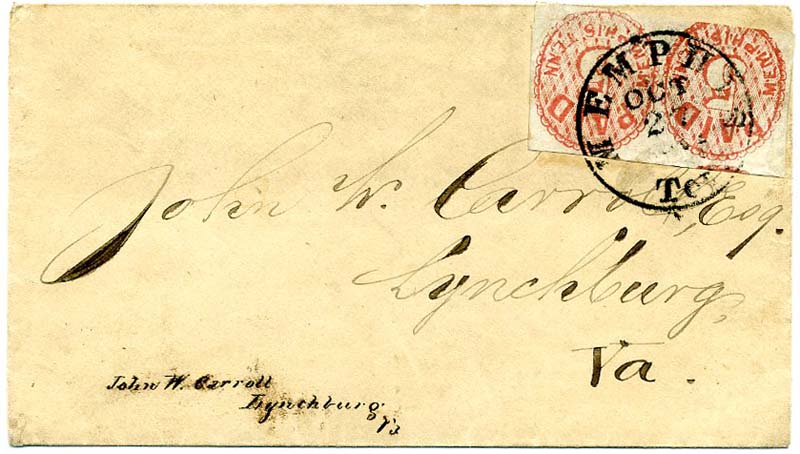 PAID
MEMPHIS, TENN.
PAID
MEMPHIS, TENN.
MEMPHIS
OCT
Te
John W. Carroll, Esq.
Lynchburg,
Va.
John W. Carroll
Lynchburg
Va